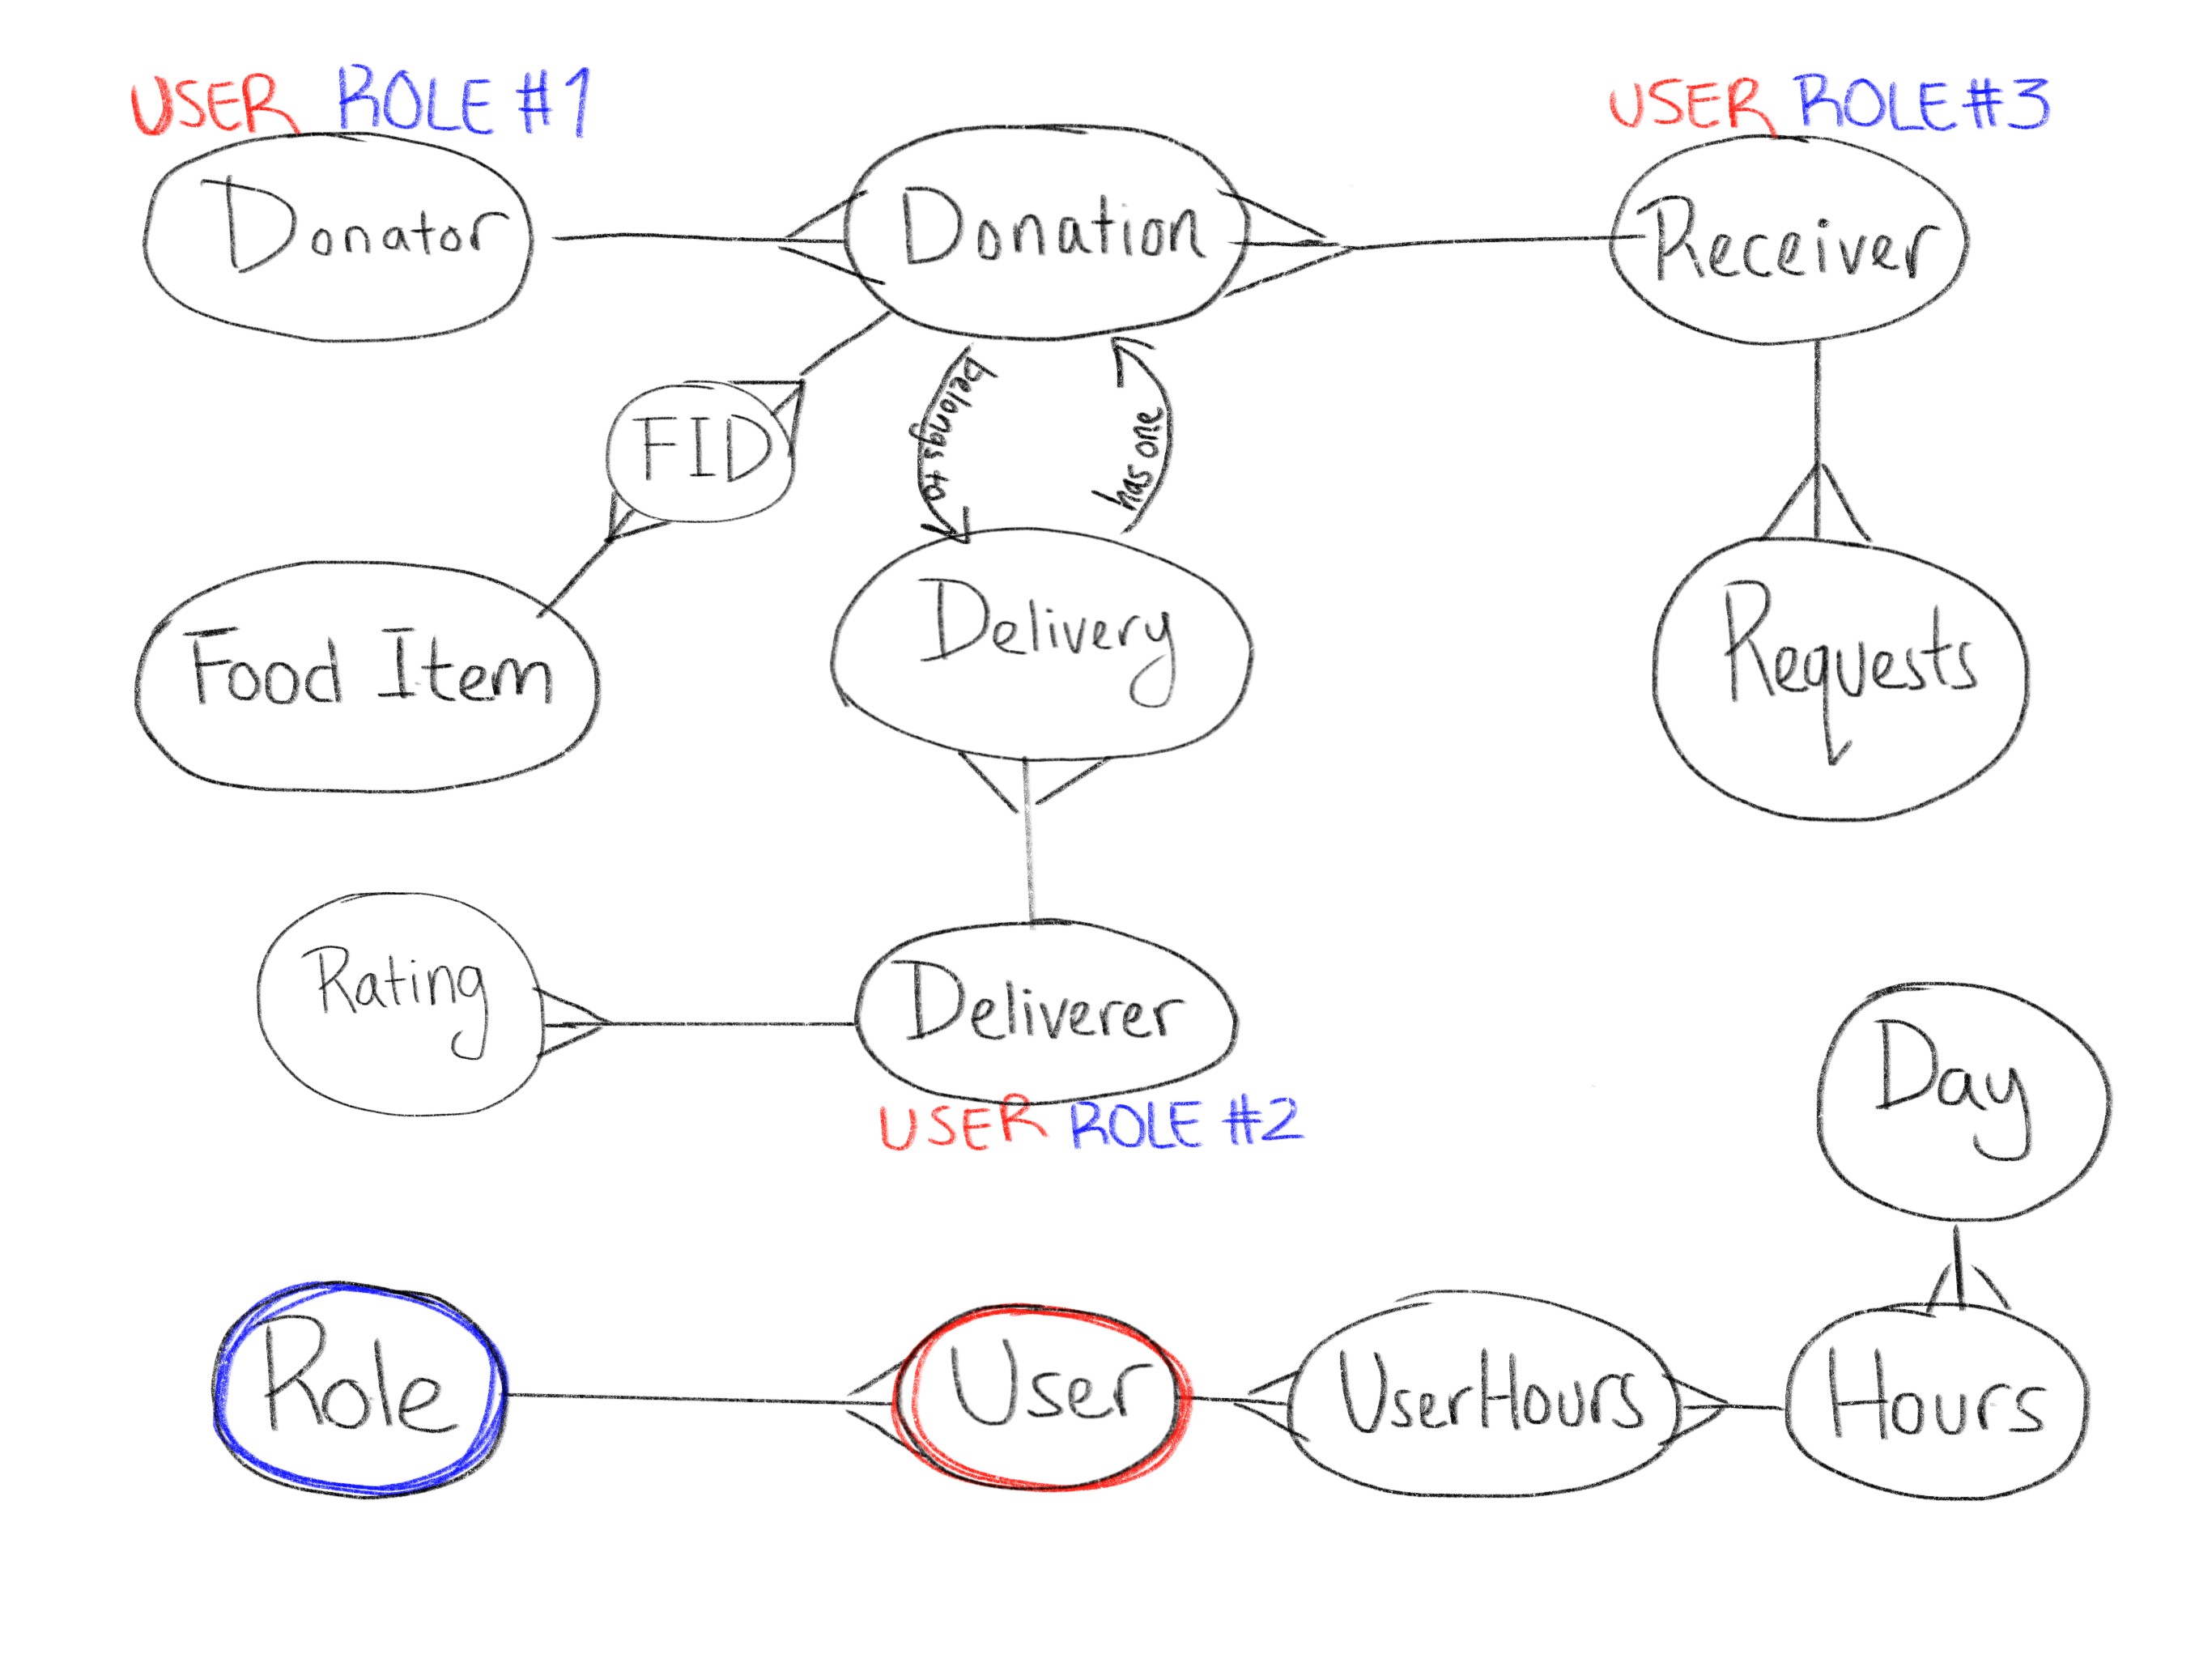 USER ROLE #1
USER ROLE #3
Donator
Donation
Receiver
belongs to
has one
FID
Food Item
Delivery
Requests
Rating
Deliverer
USER ROLE #2
Day
Role
User
UserHours
Hours